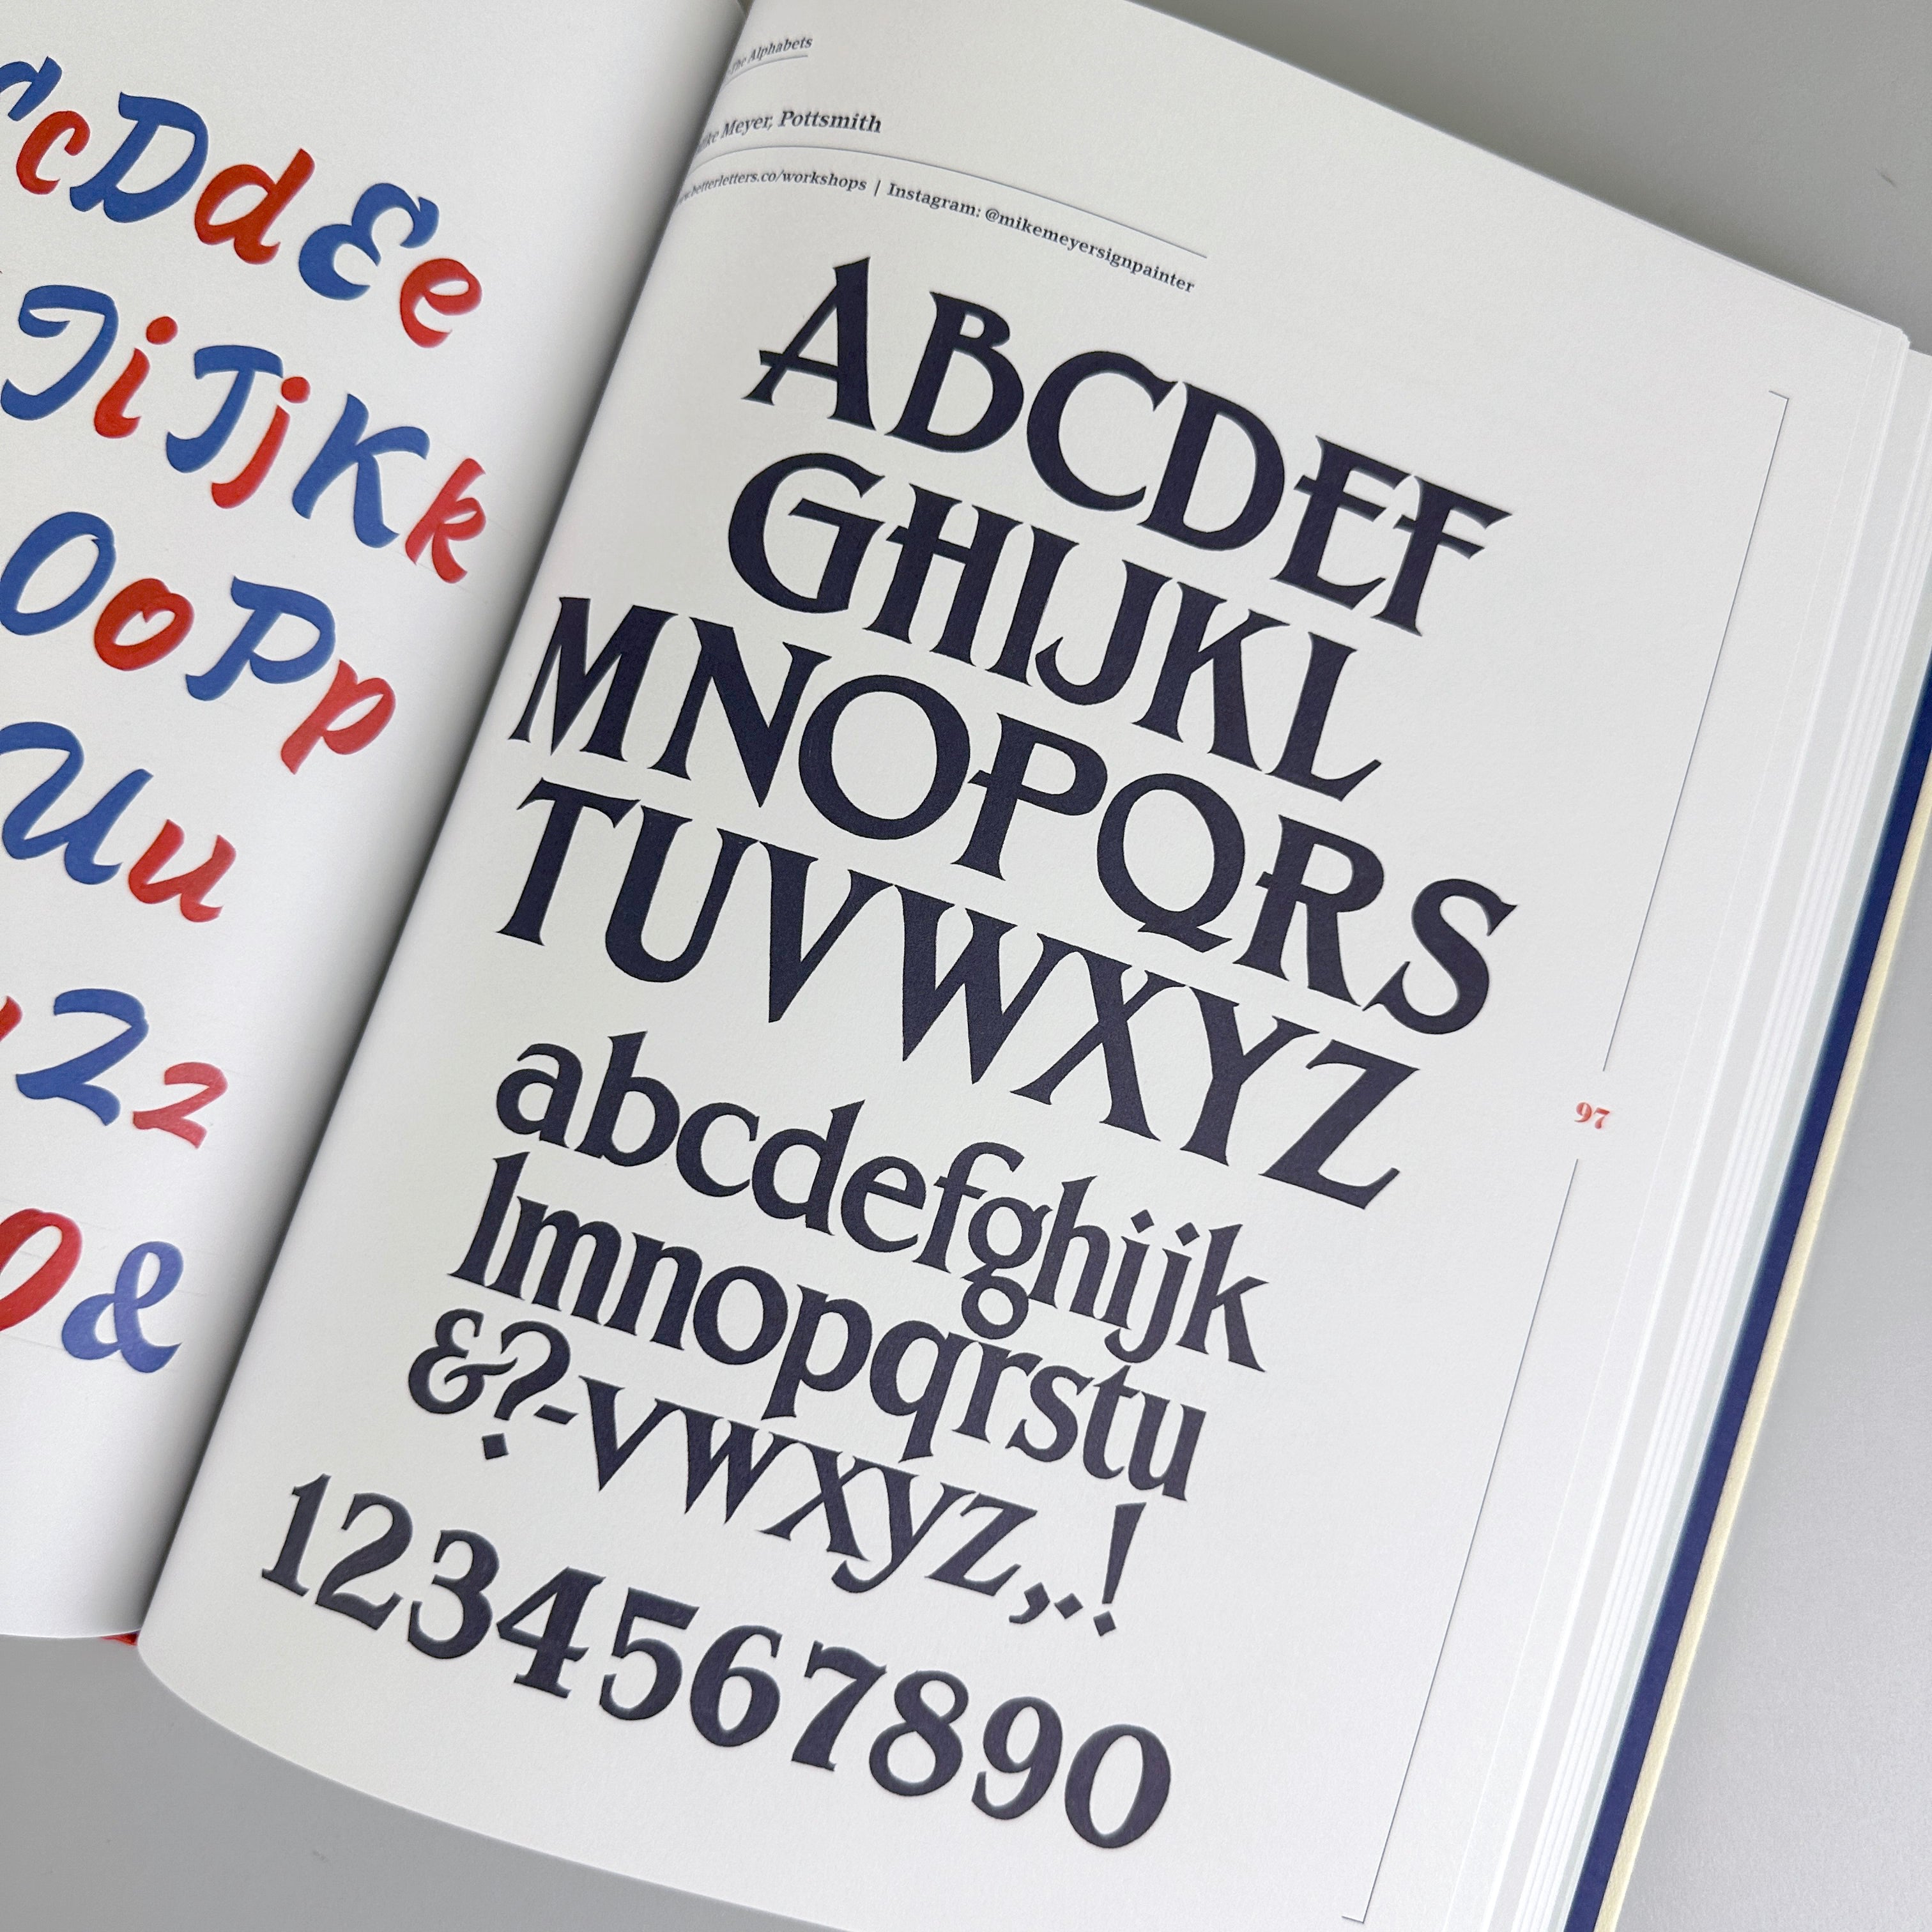 c D d E e
J i J j K k
O o P p
U u
2 2
0 &
the Alphabets
Mike Meyer, Pottsmith
www.betterletters.co/workshops | Instagram: @mikemeyersignpainter
ABCDEF
GHIJKL
MNOPQRS
TUVWXYZ
abcdefghijk
lmnopqrstu
&?-vwxyz,.!
1234567890
97